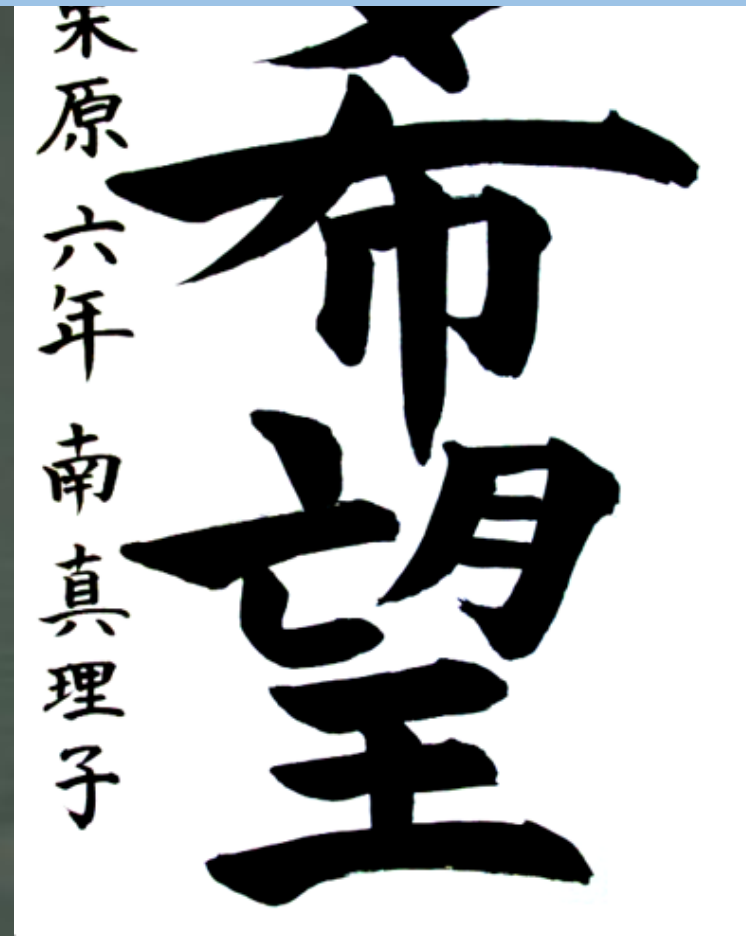 希望
原 六年 南 真理子